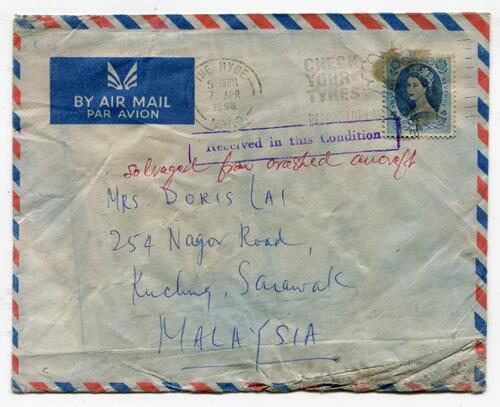 THE HYDE
5-PM
7 APR
1968
N.W.9
CHECK
YOUR
TYRES
BY AIR MAIL
PAR AVION
Received in this Condition
salvaged from crashed aircraft
MRS DORIS LAI
254 Nagor Road,
Kuching, Sarawak
MALAYSIA